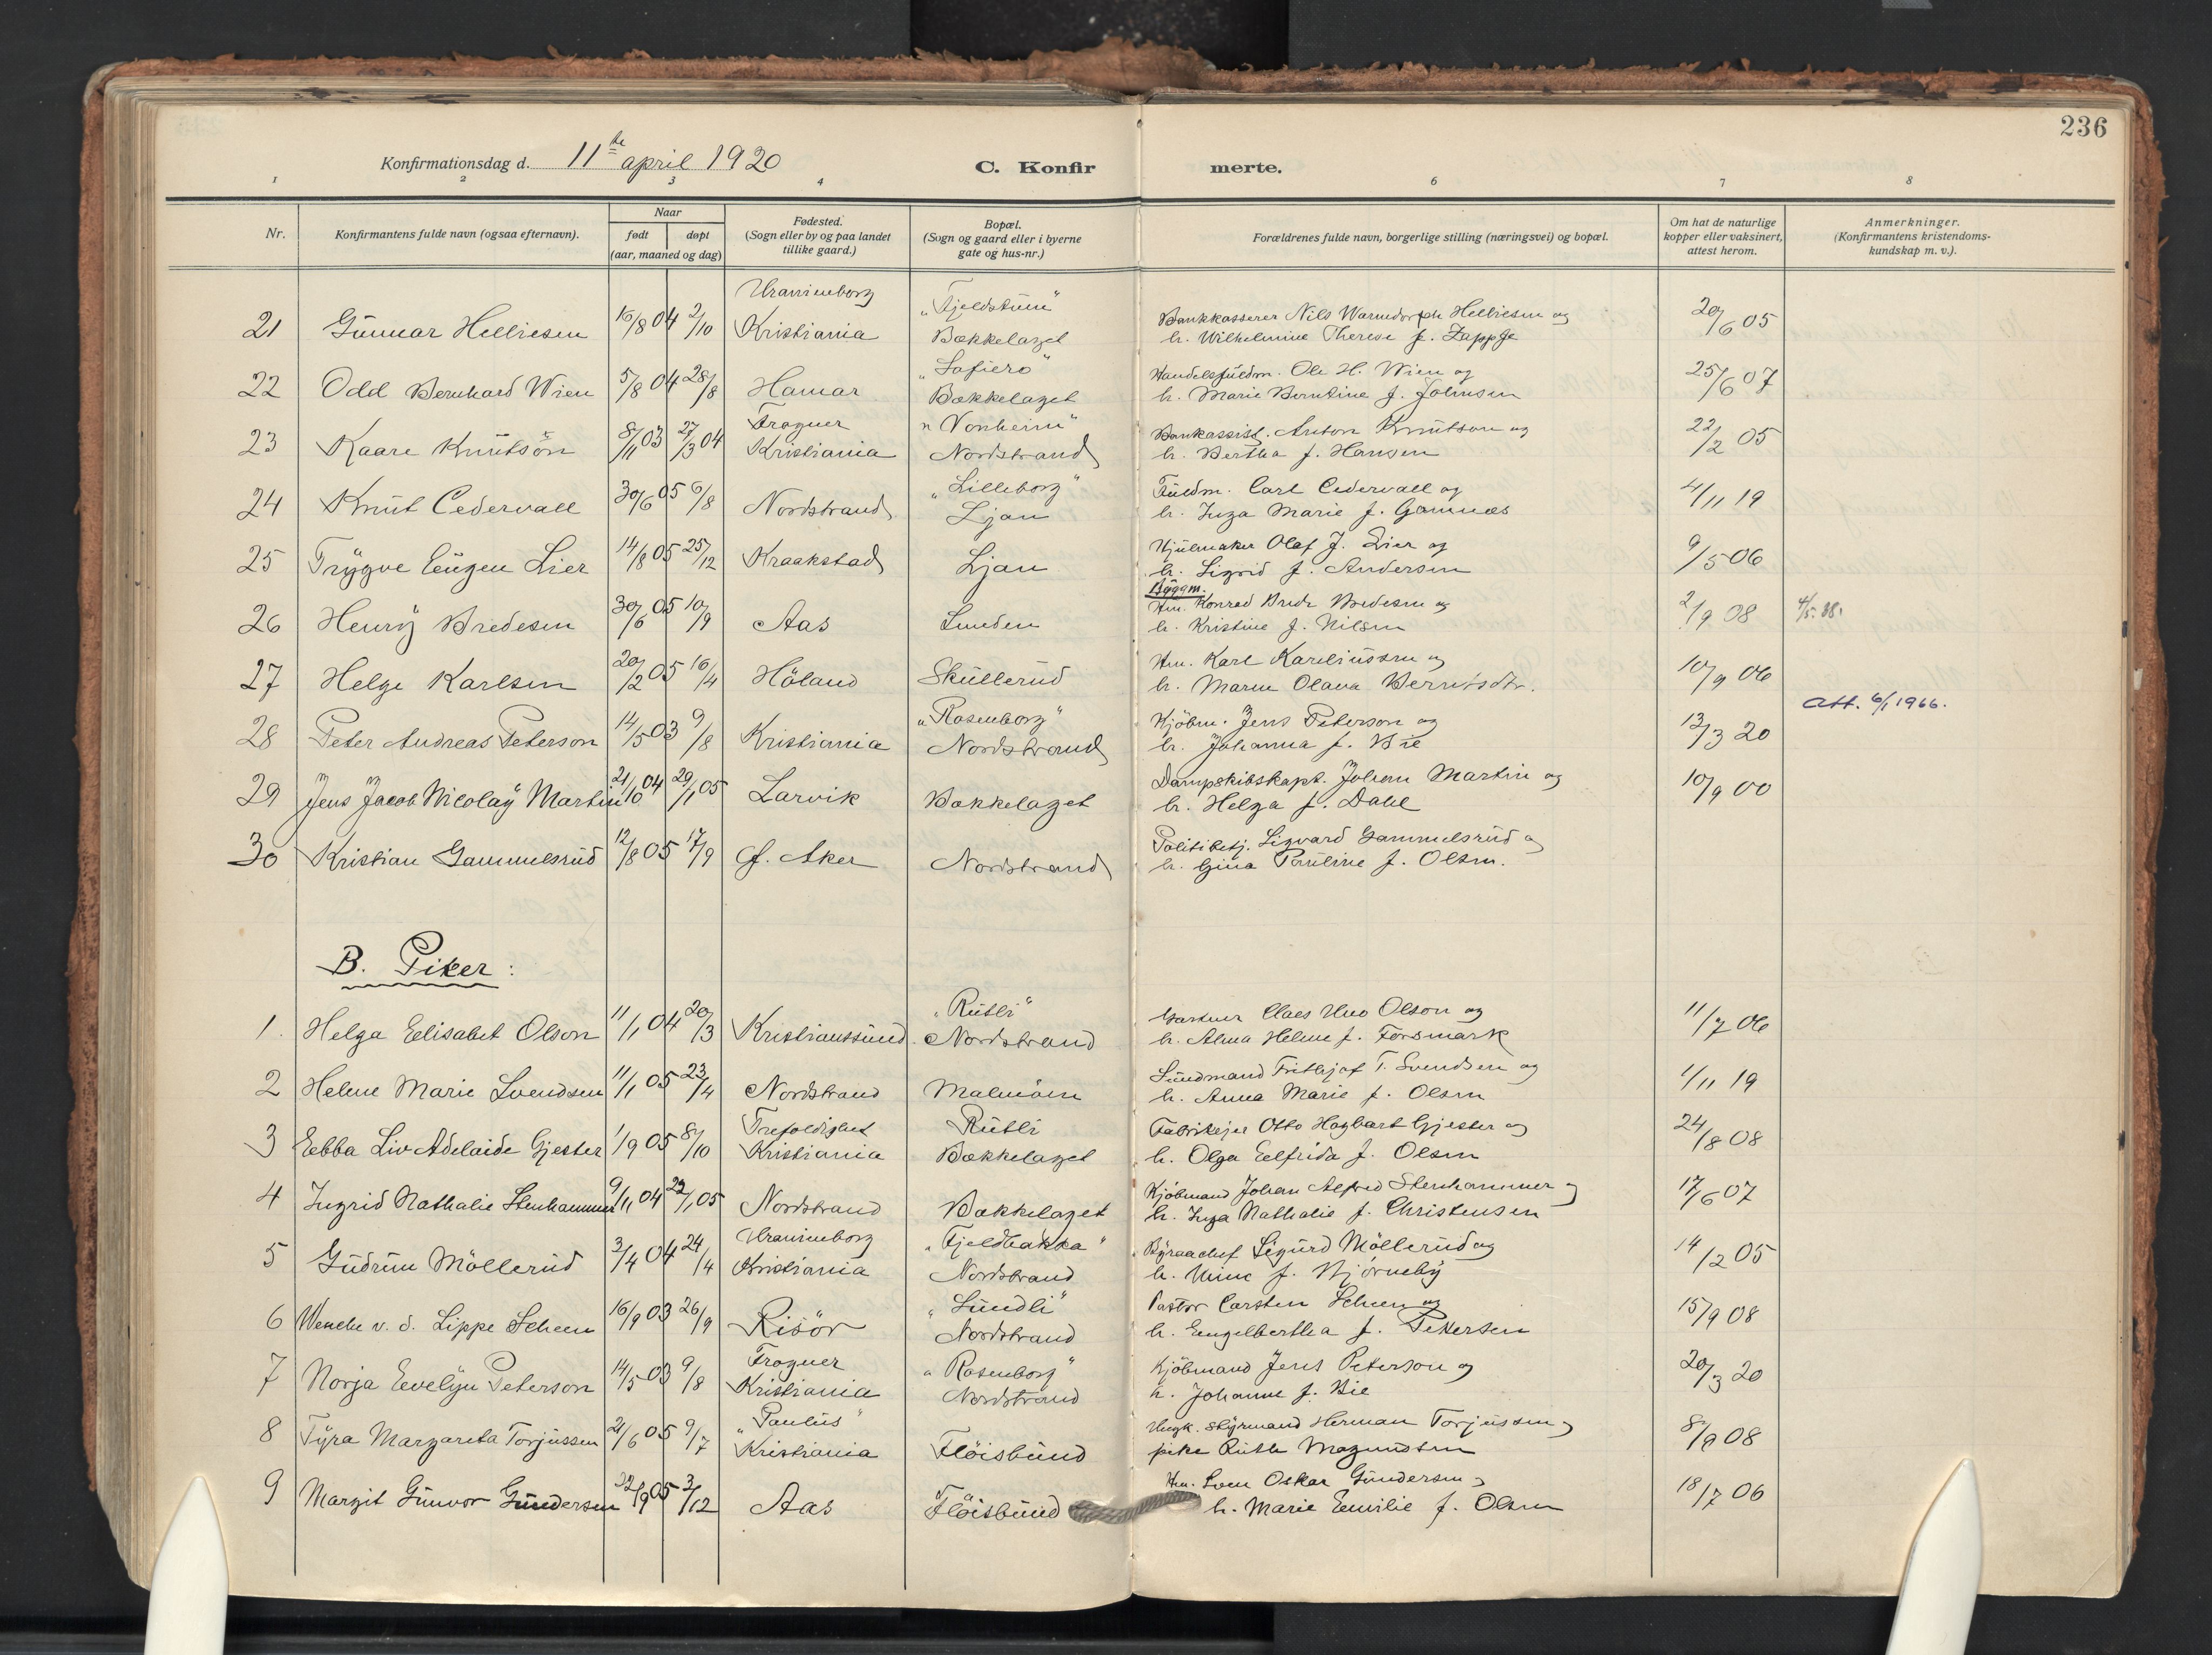 236
Konfirmationsdag d. 11te april 1920 C. Konfir merte.
1 2 3 4 6 7 8
Nr. Konfirmantens fulde navn (ogsaa efternavn). Naar født døpt (aar, maaned og dag) Fødested. (Sogn eller by og paa landet tillike gaard.) Bopæl. (Sogn og gaard eller i byerne gate og hus-nr.) Forældrenes fulde navn, borgerlige stilling (næringsvei) og bopæl. Om hat de naturlige kopper eller vaksinert, attest herom. Anmerkninger. (Konfirmantens kristendoms-kundskap m. v.).
Uranienborg „Fjeldstuen"
21 Gunnar Helliesen 16/8 04 2/10 Kristiania Bækkelaget Bankkasserer Nils Warendorph Helliesen og h. Wilhelmine Therese f. Zappfe 20/6 05
„Sofiero"
22 Odd Bernhard Wien 5/8 04 28/8 Hamar Bækkelaget Handelsfuldm. Ole H. Wien og h. Marie Berntine f. Johnsen 25/6 07
Frogner „Vonheim"
23 Kaare Knutsön 8/11 03 27/3 04 Kristiania Nordstrand Bankassist. Anton Knutson og h. Bertha f. Hansen 22/2 05
„Lilleborg"
24 Knut Cedervall 30/6 05 6/8 Nordstrand Ljan Fuldm. Carl Cedervall og h. Inga Marie f. Gamnæs 4/11 19
25 Trygve Eugen Lier 14/8 05 25/12 Kraakstad Ljan Hjulmaker Olaf J. Lier og h. Sigrid f. Andersen 9/5 06
Byggm.
26 Henry Bredesen 30/6 05 10/9 Aas Lunden Hm. Konrad Bredesen og h. Kristine f. Nilsen 2/9 08 4/5. 38.
27 Helge Karlsen 20/2 05 16/4 Höland Skullerud Hm. Karl Kareliussen og h. Maren Olava Berntsdtr. 10/9 06
Att. 6/1 1966.
„Rosenborg"
28 Peter Andreas Peterson 14/5 03 9/8 Kristiania Nordstrand Kjöbm. Jens Peterson og h. Johanna f. Bie 13/3 20
29 Jens Jacob Nicolay Martin 21/10 04 29/1 05 Larvik Bækkelaget Dampskibskapt. Johan Martin og h. Helga f. Dahl 10/9 00
30 Kristian Gammelsrud 12/8 05 17/9 Gl. Aker Nordstrand Politibetj. Sigvard Gammelsrud og h. Gina Pauline f. Olsen.
B. Piker:
„Rütli"
1. Helga Elisabet Olson 11/1 04 20/3 Kristianssund Nordstrand Gartner Claes Uno Olson og h. Alma Helene f. Forsmark 11/7 06
2 Helene Marie Svendsen 11/1 05 23/4 Nordstrand Malmöen Sundmand Frithjof T. Svendsen og h. Anna Marie f. Olsen 4/11 19
Trefoldighet Rütli
3 Ebba Liv Adelaide Gjester 1/9 05 8/10 Kristiania Bækkelaget Fabrikejer Otto Hagbart Gjester og h. Olga Elfrida f. Olsen 24/8 08
4 Ingrid Nathalie Stenhammer 9/11 04 22/1 05 Nordstrand Bækkelaget Kjöbmand Johan Alfred Stenhammer og h. Inga Nathalie f. Christensen 17/6 07
Uranienborg „Fjeldbakka"
5 Gudrun Möllerud 3/4 04 24/4 Kristiania Nordstrand Byraachef Sigurd Möllerud og h. Unine f. Bjørneby 14/2 05
„Lundli"
6 Wenche v. d. Lippe Scheen 16/9 03 26/9 Risör Nordstrand Pastor Carsten Scheen og h. Engelbertha f. Petersen 15/9 08
Frogner „Rosenborg"
7 Norja Evelyn Peterson 14/5 03 9/8 Kristiania Nordstrand Kjöbmand Jens Peterson og h. Johanne f. Bie 20/3 20
„Paulus"
8 Tyra Margareta Torjussen 21/6 05 9/7 Kristiania Fløisbund Ungk. styrmand Herman Torjussen og pike Ruth Magnussen 8/9 08
9 Margit Gunvor Gundersen 22/9 05 3/12 Aas Flöisbund Hm. Sven Oskar Gundersen og h. Marie Emilie f. Olsen 18/7 06